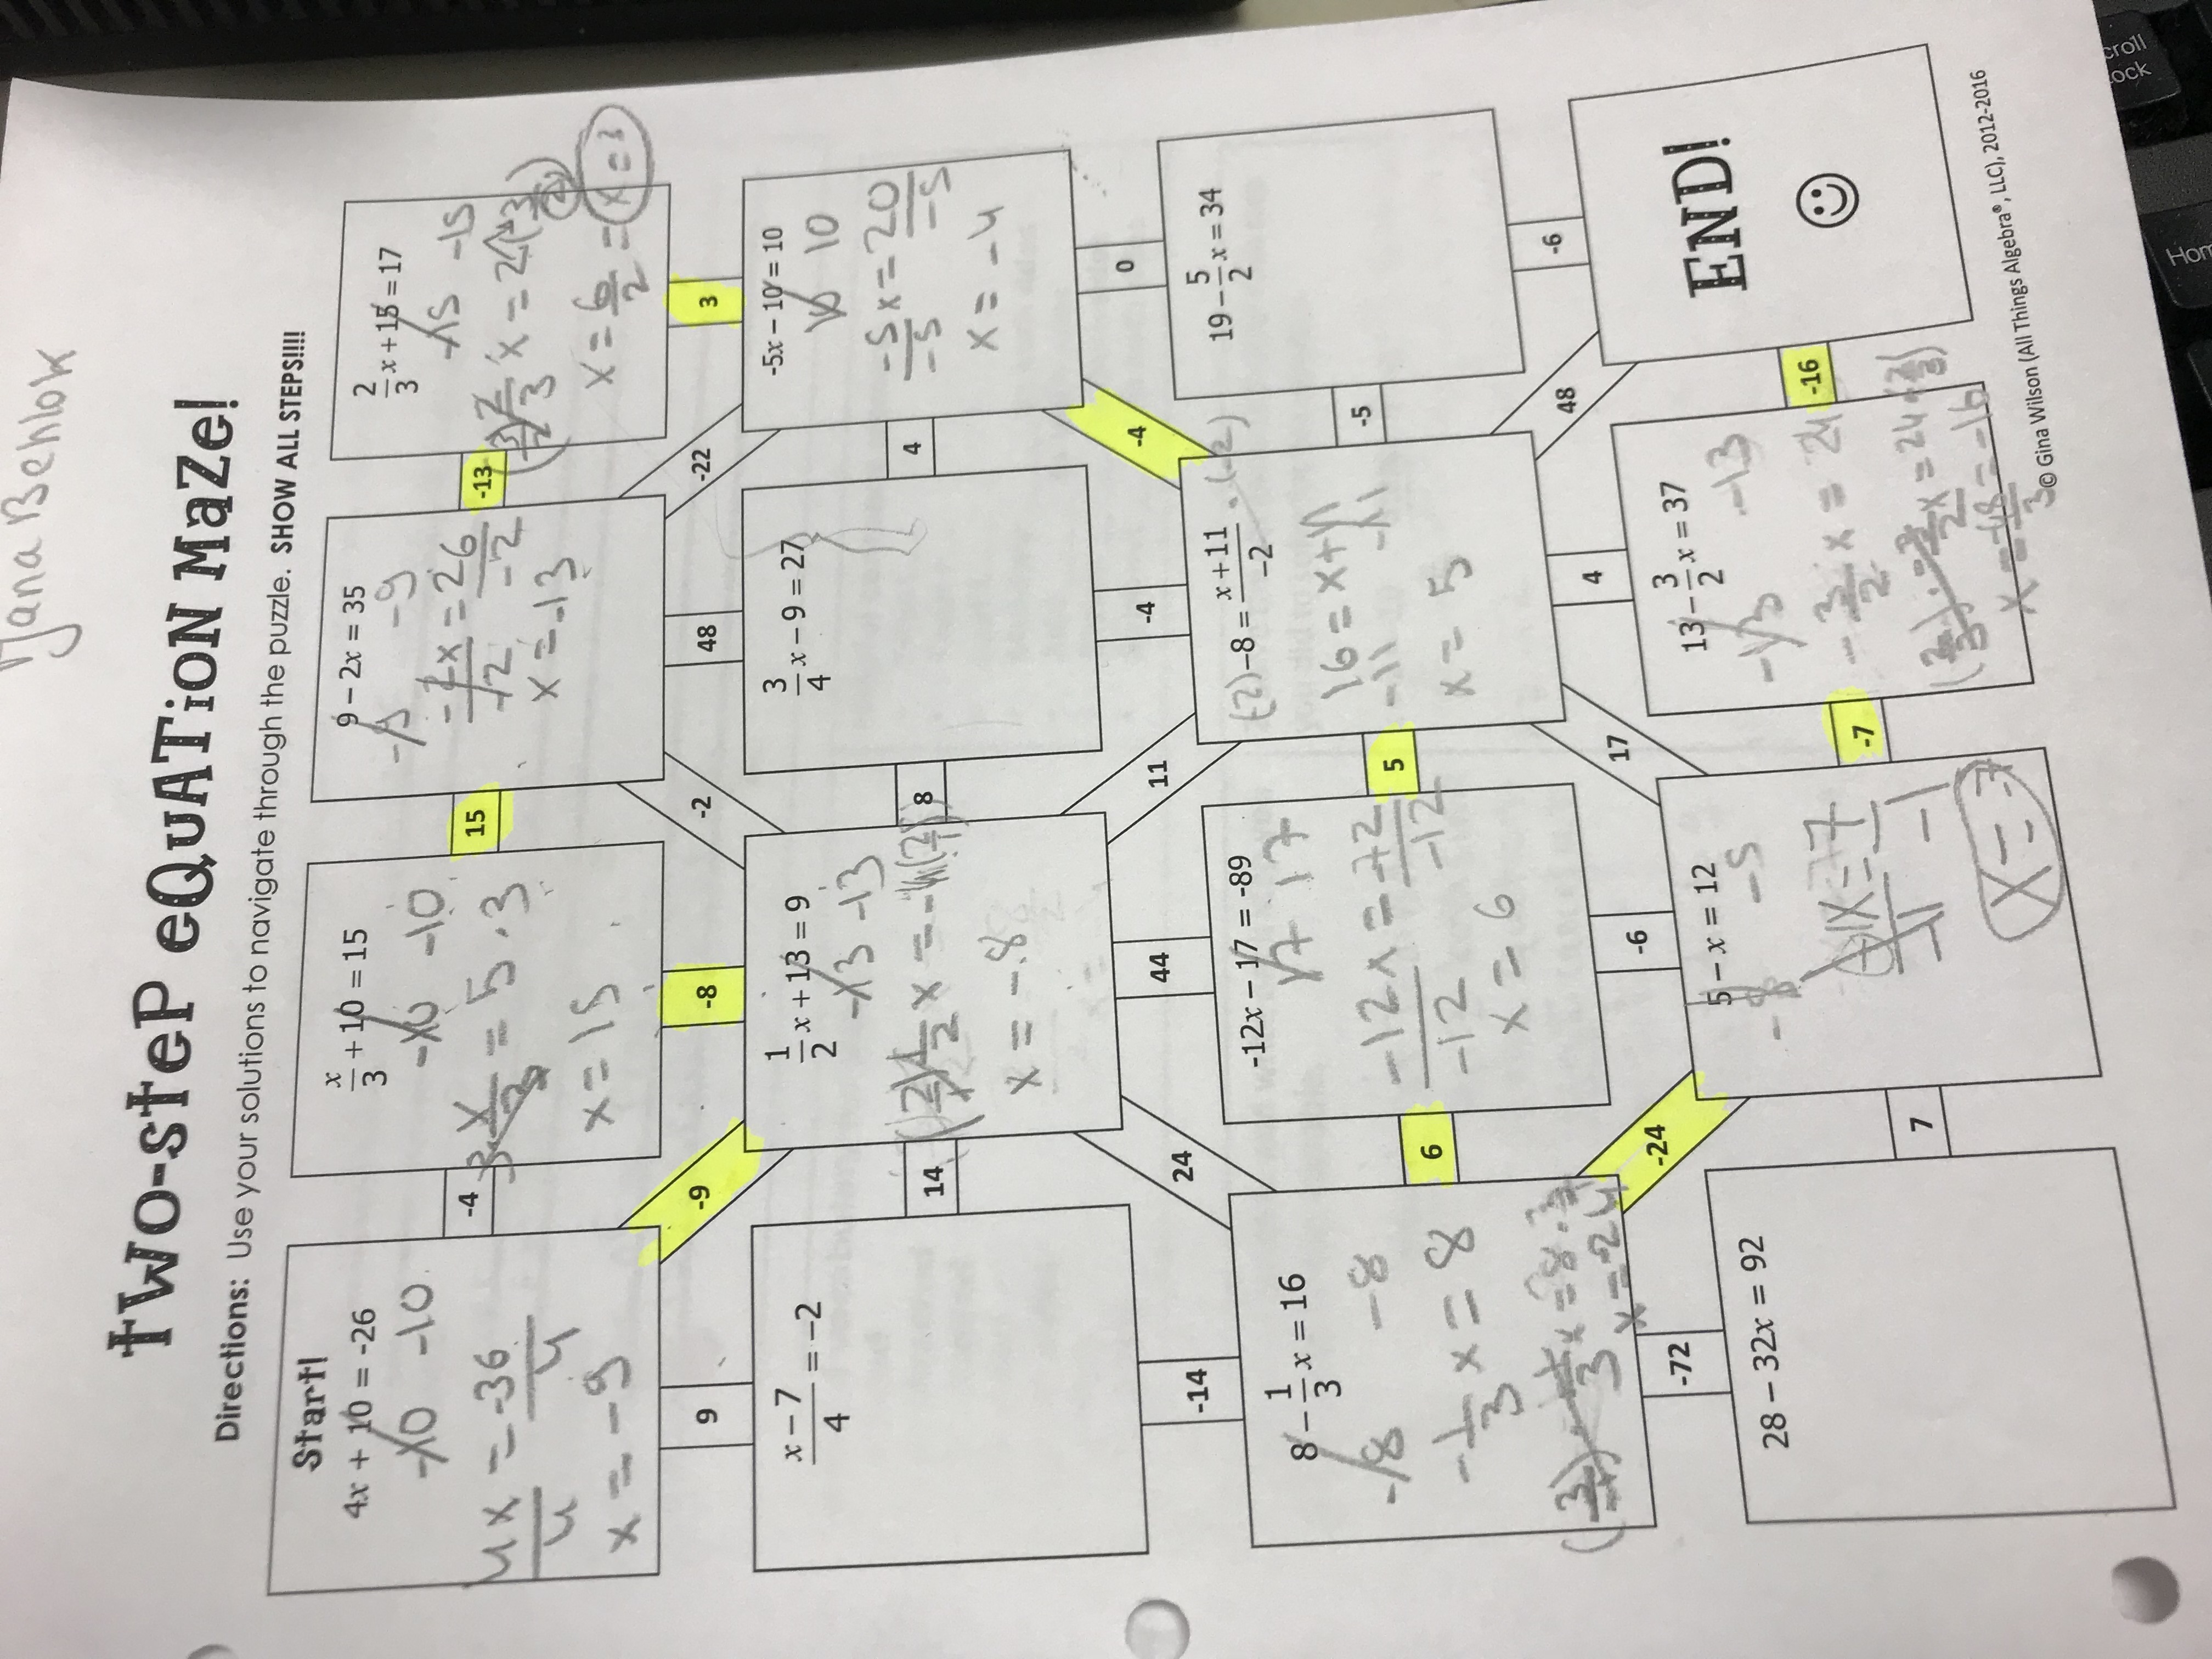 Jana Behlow
Two-Step Equation Maze!
Directions: Use your solutions to navigate through the puzzle. SHOW ALL STEPS!!!!
Start!
4x + 10 = -26
-10 -10
4x = -36
4 4
x = -9
-4
x/3 + 10 = 15
-10 -10
3 · x/3 = 5 · 3
x = 15
15
9 − 2x = 35
-9 -9
-2x = 26
-2 -2
x = -13
-13
2/3 x + 15 = 17
-15 -15
x = 6/2 = x = 3
9
-9
-8
-2
48
-22
3
x − 7
4
= −2
14
1/2 x + 13 = 9
-13 -13
x = -8
8
3/4 x − 9 = 27
4
-5x − 10 = 10
10 10
-5x = 20
-5 -5
x = -4
-14
24
44
11
-4
-4
0
8 − 1/3 x = 16
-8 -8
-1/3 x = 8
x = -24
6
-12x − 17 = -89
17 17
-12x = -72
-12 -12
x = 6
5
(-2) -8 = x + 11 / -2 · (-2)
16 = x + 11
-11 -11
x = 5
-5
19 − 5/2 x = 34
-72
-24
-6
17
4
48
-6
28 − 32x = 92
7
5 − x = 12
-5 -5
-1x = 7
-1 -1
x = -7
-7
13 − 3/2 x = 37
-13 -13
-3/2 x = 24
x = -48/3 = -16
-16
END!
© Gina Wilson (All Things Algebra®, LLC), 2012-2016
Scroll
Lock
Hom